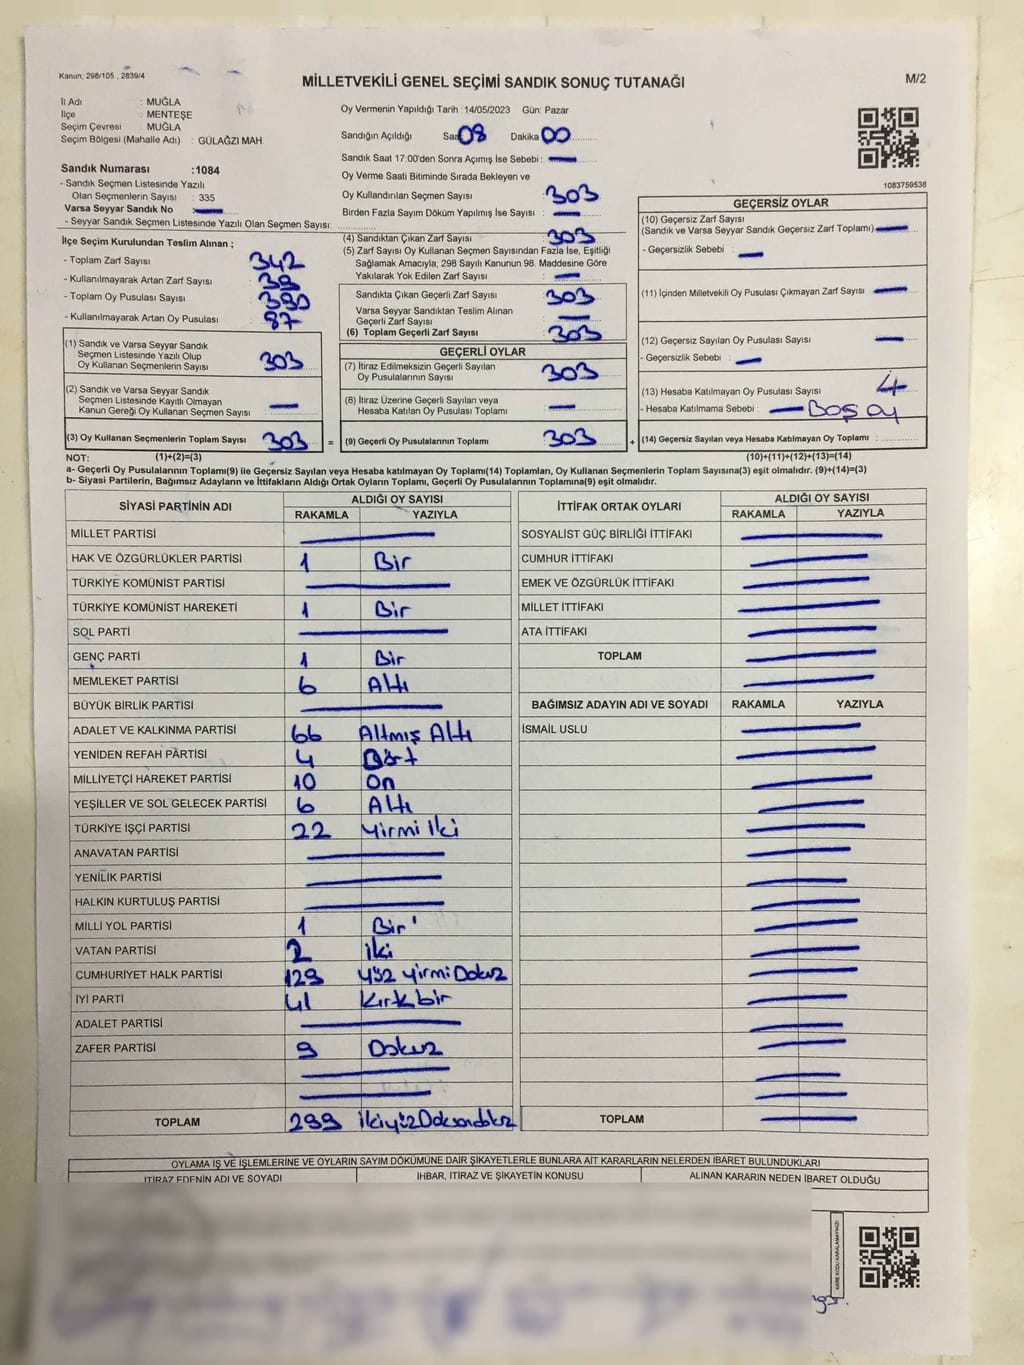 Kanun; 298/105 , 2839/4
MİLLETVEKİLİ GENEL SEÇİMİ SANDIK SONUÇ TUTANAĞI
M/2
İl Adı : MUĞLA
İlçe : MENTEŞE
Seçim Çevresi : MUĞLA
Seçim Bölgesi (Mahalle Adı) : GÜLAĞZI MAH.
Sandık Numarası :1084
- Sandık Seçmen Listesinde Yazılı
Olan Seçmenlerin Sayısı : 335
Varsa Seyyar Sandık No :
- Seyyar Sandık Seçmen Listesinde Yazılı Olan Seçmen Sayısı:
İlçe Seçim Kurulundan Teslim Alınan ;
- Toplam Zarf Sayısı 342
- Kullanılmayarak Artan Zarf Sayısı 39
- Toplam Oy Pusulası Sayısı 390
- Kullanılmayarak Artan Oy Pusulası 87
(1) Sandık ve Varsa Seyyar Sandık
Seçmen Listesinde Yazılı Olup
Oy Kullanan Seçmenlerin Sayısı 303
(2) Sandık ve Varsa Seyyar Sandık
Seçmen Listesinde Kayıtlı Olmayan
Kanun Gereği Oy Kullanan Seçmen Sayısı :
(3) Oy Kullanan Seçmenlerin Toplam Sayısı 303 =
Oy Vermenin Yapıldığı Tarih :14/05/2023 Gün: Pazar
Sandığın Açıldığı Saat 08 Dakika 00
Sandık Saat 17:00'den Sonra Açımış İse Sebebi :
Oy Verme Saati Bitiminde Sırada Bekleyen ve
Oy Kullandırılan Seçmen Sayısı : 303
Birden Fazla Sayım Döküm Yapılmış İse Sayısı :
(4) Sandıktan Çıkan Zarf Sayısı : 303
(5) Zarf Sayısı Oy Kullanan Seçmen Sayısından Fazla İse, Eşitliği
Sağlamak Amacıyla; 298 Sayılı Kanunun 98. Maddesine Göre
Yakılarak Yok Edilen Zarf Sayısı :
Sandıkta Çıkan Geçerli Zarf Sayısı : 303
Varsa Seyyar Sandıktan Teslim Alınan
Geçerli Zarf Sayısı :
(6) Toplam Geçerli Zarf Sayısı : 303
GEÇERLİ OYLAR
(7) İtiraz Edilmeksizin Geçerli Sayılan
Oy Pusulalarının Sayısı : 303
(8) İtiraz Üzerine Geçerli Sayılan veya
Hesaba Katılan Oy Pusulası Toplamı :
(9) Geçerli Oy Pusulalarının Toplamı : 303 +
1083759538
GEÇERSİZ OYLAR
(10) Geçersiz Zarf Sayısı
(Sandık ve Varsa Seyyar Sandık Geçersiz Zarf Toplamı)
- Geçersizlik Sebebi :
(11) İçinden Milletvekili Oy Pusulası Çıkmayan Zarf Sayısı
(12) Geçersiz Sayılan Oy Pusulası Sayısı
- Geçersizlik Sebebi :
(13) Hesaba Katılmayan Oy Pusulası Sayısı 4
- Hesaba Katılmama Sebebi : Boş oy
(14) Geçersiz Sayılan veya Hesaba Katılmayan Oy Toplamı :
NOT: (1)+(2)=(3) (10)+(11)+(12)+(13)=(14)
a- Geçerli Oy Pusulalarının Toplamı(9) ile Geçersiz Sayılan veya Hesaba katılmayan Oy Toplamı(14) Toplamları, Oy Kullanan Seçmenlerin Toplam Sayısına(3) eşit olmalıdır. (9)+(14)=(3)
b- Siyasi Partilerin, Bağımsız Adayların ve İttifakların Aldığı Oyların Toplamı, Geçerli Oy Pusulalarının Toplamına(9) eşit olmalıdır.
SİYASİ PARTİNİN ADI ALDIĞI OY SAYISI
RAKAMLA YAZIYLA
MİLLET PARTİSİ
HAK VE ÖZGÜRLÜKLER PARTİSİ 1 Bir
TÜRKİYE KOMÜNİST PARTİSİ
TÜRKİYE KOMÜNİST HAREKETİ 1 Bir
SOL PARTİ
GENÇ PARTİ 1 Bir
MEMLEKET PARTİSİ 6 Altı
BÜYÜK BİRLİK PARTİSİ
ADALET VE KALKINMA PARTİSİ 66 Altmış Altı
YENİDEN REFAH PARTİSİ 4 Dört
MİLLİYETÇİ HAREKET PARTİSİ 10 On
YEŞİLLER VE SOL GELECEK PARTİSİ 6 Altı
TÜRKİYE İŞÇİ PARTİSİ 22 Yirmi İki
ANAVATAN PARTİSİ
YENİLİK PARTİSİ
HALKIN KURTULUŞ PARTİSİ
MİLLİ YOL PARTİSİ 1 Bir
VATAN PARTİSİ 2 İki
CUMHURİYET HALK PARTİSİ 129 Yüz Yirmi Dokuz
İYİ PARTİ 41 Kırk bir
ADALET PARTİSİ
ZAFER PARTİSİ 9 Dokuz
TOPLAM 299 İkiyüz Doksandokuz
İTTİFAK ORTAK OYLARI ALDIĞI OY SAYISI
RAKAMLA YAZIYLA
SOSYALİST GÜÇ BİRLİĞİ İTTİFAKI
CUMHUR İTTİFAKI
EMEK VE ÖZGÜRLÜK İTTİFAKI
MİLLET İTTİFAKI
ATA İTTİFAKI
TOPLAM
BAĞIMSIZ ADAYIN ADI VE SOYADI RAKAMLA YAZIYLA
İSMAİL USLU
TOPLAM
OYLAMA İŞ VE İŞLEMLERİNE VE OYLARIN SAYIM DÖKÜMÜNE DAİR ŞİKAYETLERLE BUNLARA AİT KARARLARIN NELERDEN İBARET BULUNDUKLARI
İTİRAZ EDENİN ADI VE SOYADI İHBAR, İTİRAZ VE ŞİKAYETİN KONUSU ALINAN KARARIN NEDEN İBARET OLDUĞU
KARE KODU KARALAMAYINIZ!